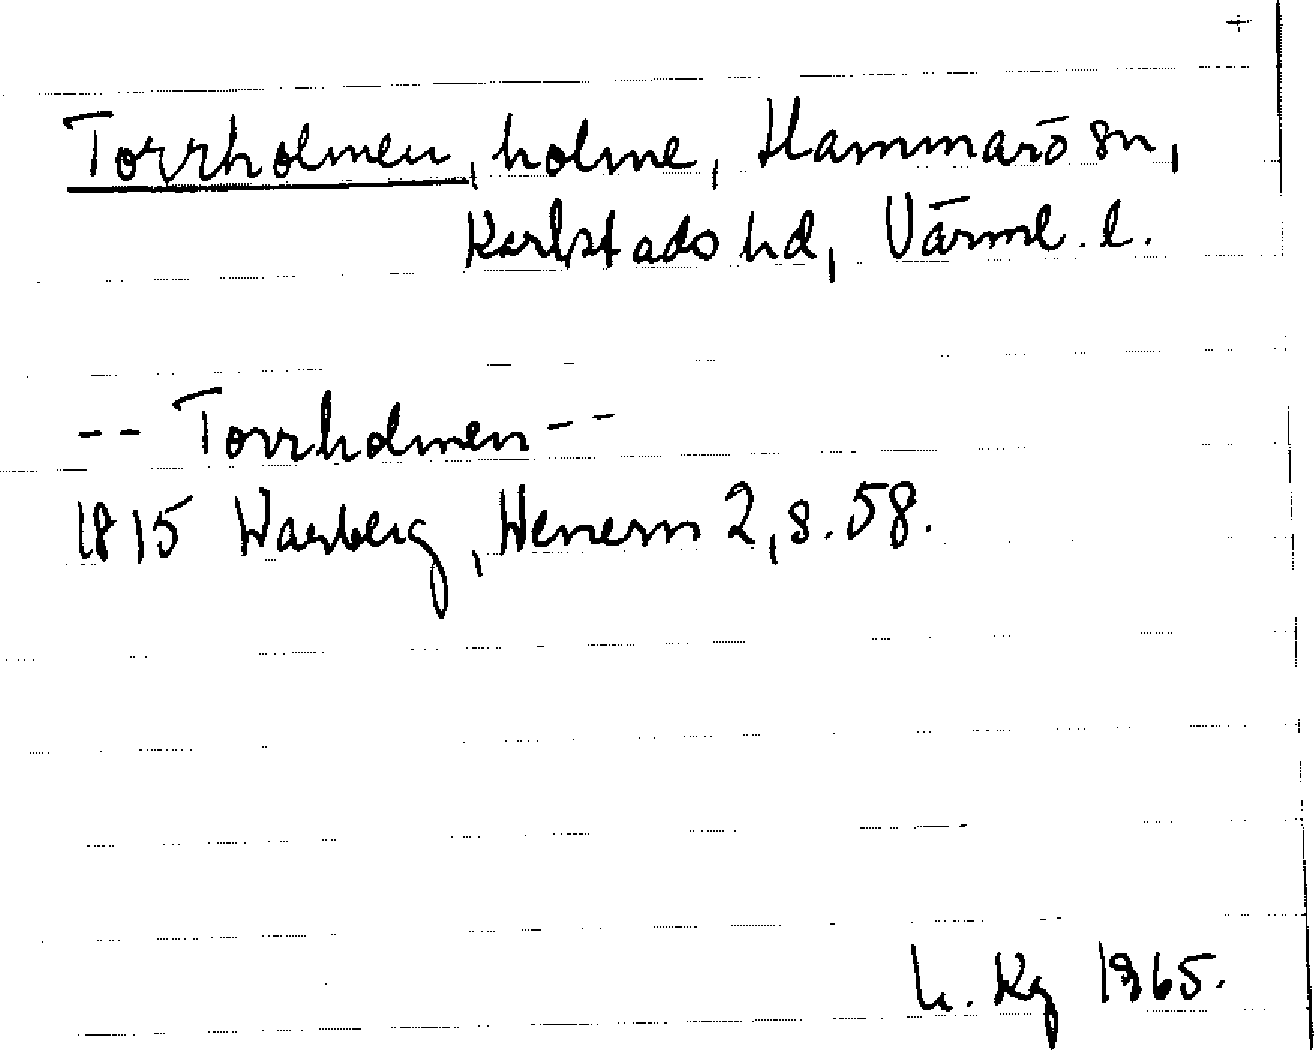 +
Torrholmen, holme, Hammarö sn,
Karlstads hd, Värml. l.
-- Torrholmen --
1815 Warberg, Wenern 2, s. 58.
L. Kg 1965.